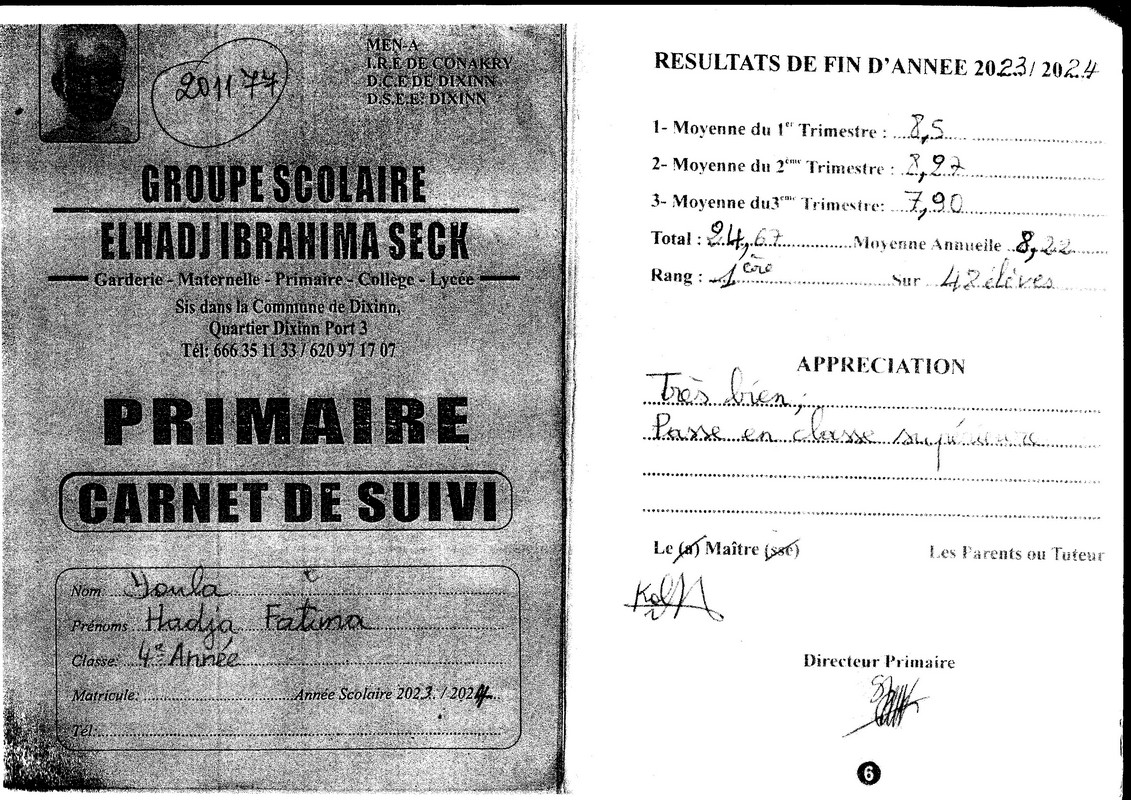 201177
MEN-A
I.R.E DE CONAKRY
D.C.E DE DIXINN
D.S.E.E: DIXINN
GROUPE SCOLAIRE
ELHADJ IBRAHIMA SECK
Garderie - Maternelle - Primaire - Collège - Lycée
Sis dans la Commune de Dixinn,
Quartier Dixinn Port 3
Tél: 666 35 11 33 / 620 97 17 07
PRIMAIRE
CARNET DE SUIVI
Nom Youla
Prénoms Hadja Fatima
Classe: 4e Année
Matricule: Année Scolaire 2023 / 2024
Tél:
RESULTATS DE FIN D'ANNEE 2023 / 2024
1- Moyenne du 1er Trimestre : 8,5
2- Moyenne du 2ème Trimestre : 8,27
3- Moyenne du3eme Trimestre: 7,90
Total : 24,67 Moyenne Annuelle 8,22
Rang : 1ère Sur 48 élèves
APPRECIATION
Très bien,
Passe en classe supérieure
Le (a) Maître (sse) Les Parents ou Tuteur
Directeur Primaire
6